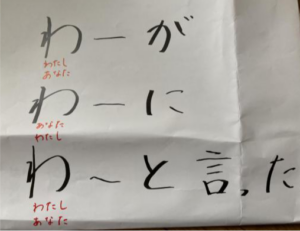 わーが
わたし
あなた
わーに
あなた
わたし
わ〜と言った
わたし
あなた